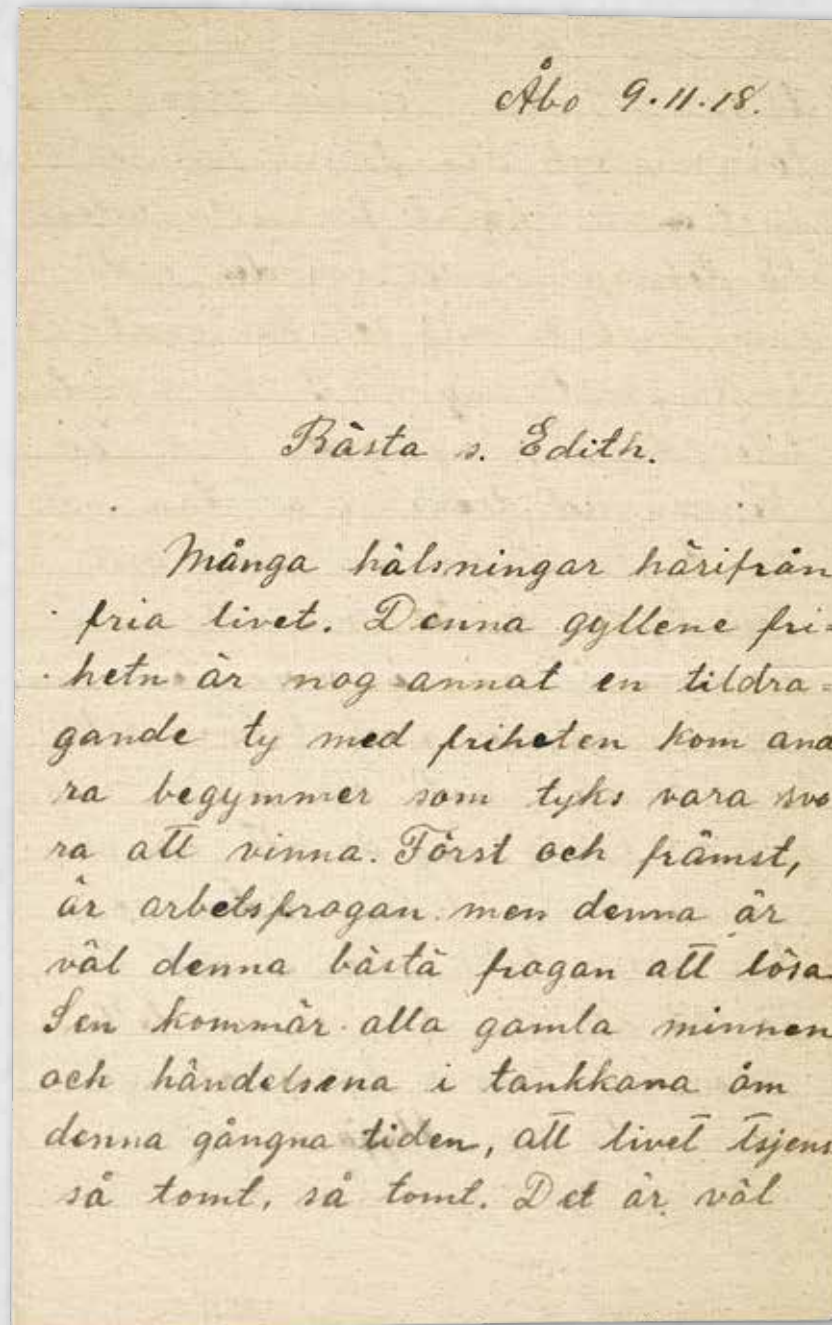 Åbo 9.11.18.
Bästa s. Edith.
Många hälsningar härifrån
fria livet. Denna gyllene fri=
hetn är nog annat en tildra=
gande ty med friheten kom and
ra begymmer som tyks vara svo
ra att vinna. Först och främst,
är arbetsfrogan men denna är
väl denna bästä frogan att lösa
Sen kommär alla gamla minnen
och händelsena i tankkana åm
denna gångna tiden, att livet tsjens
så tomt, så tomt. Det är väl